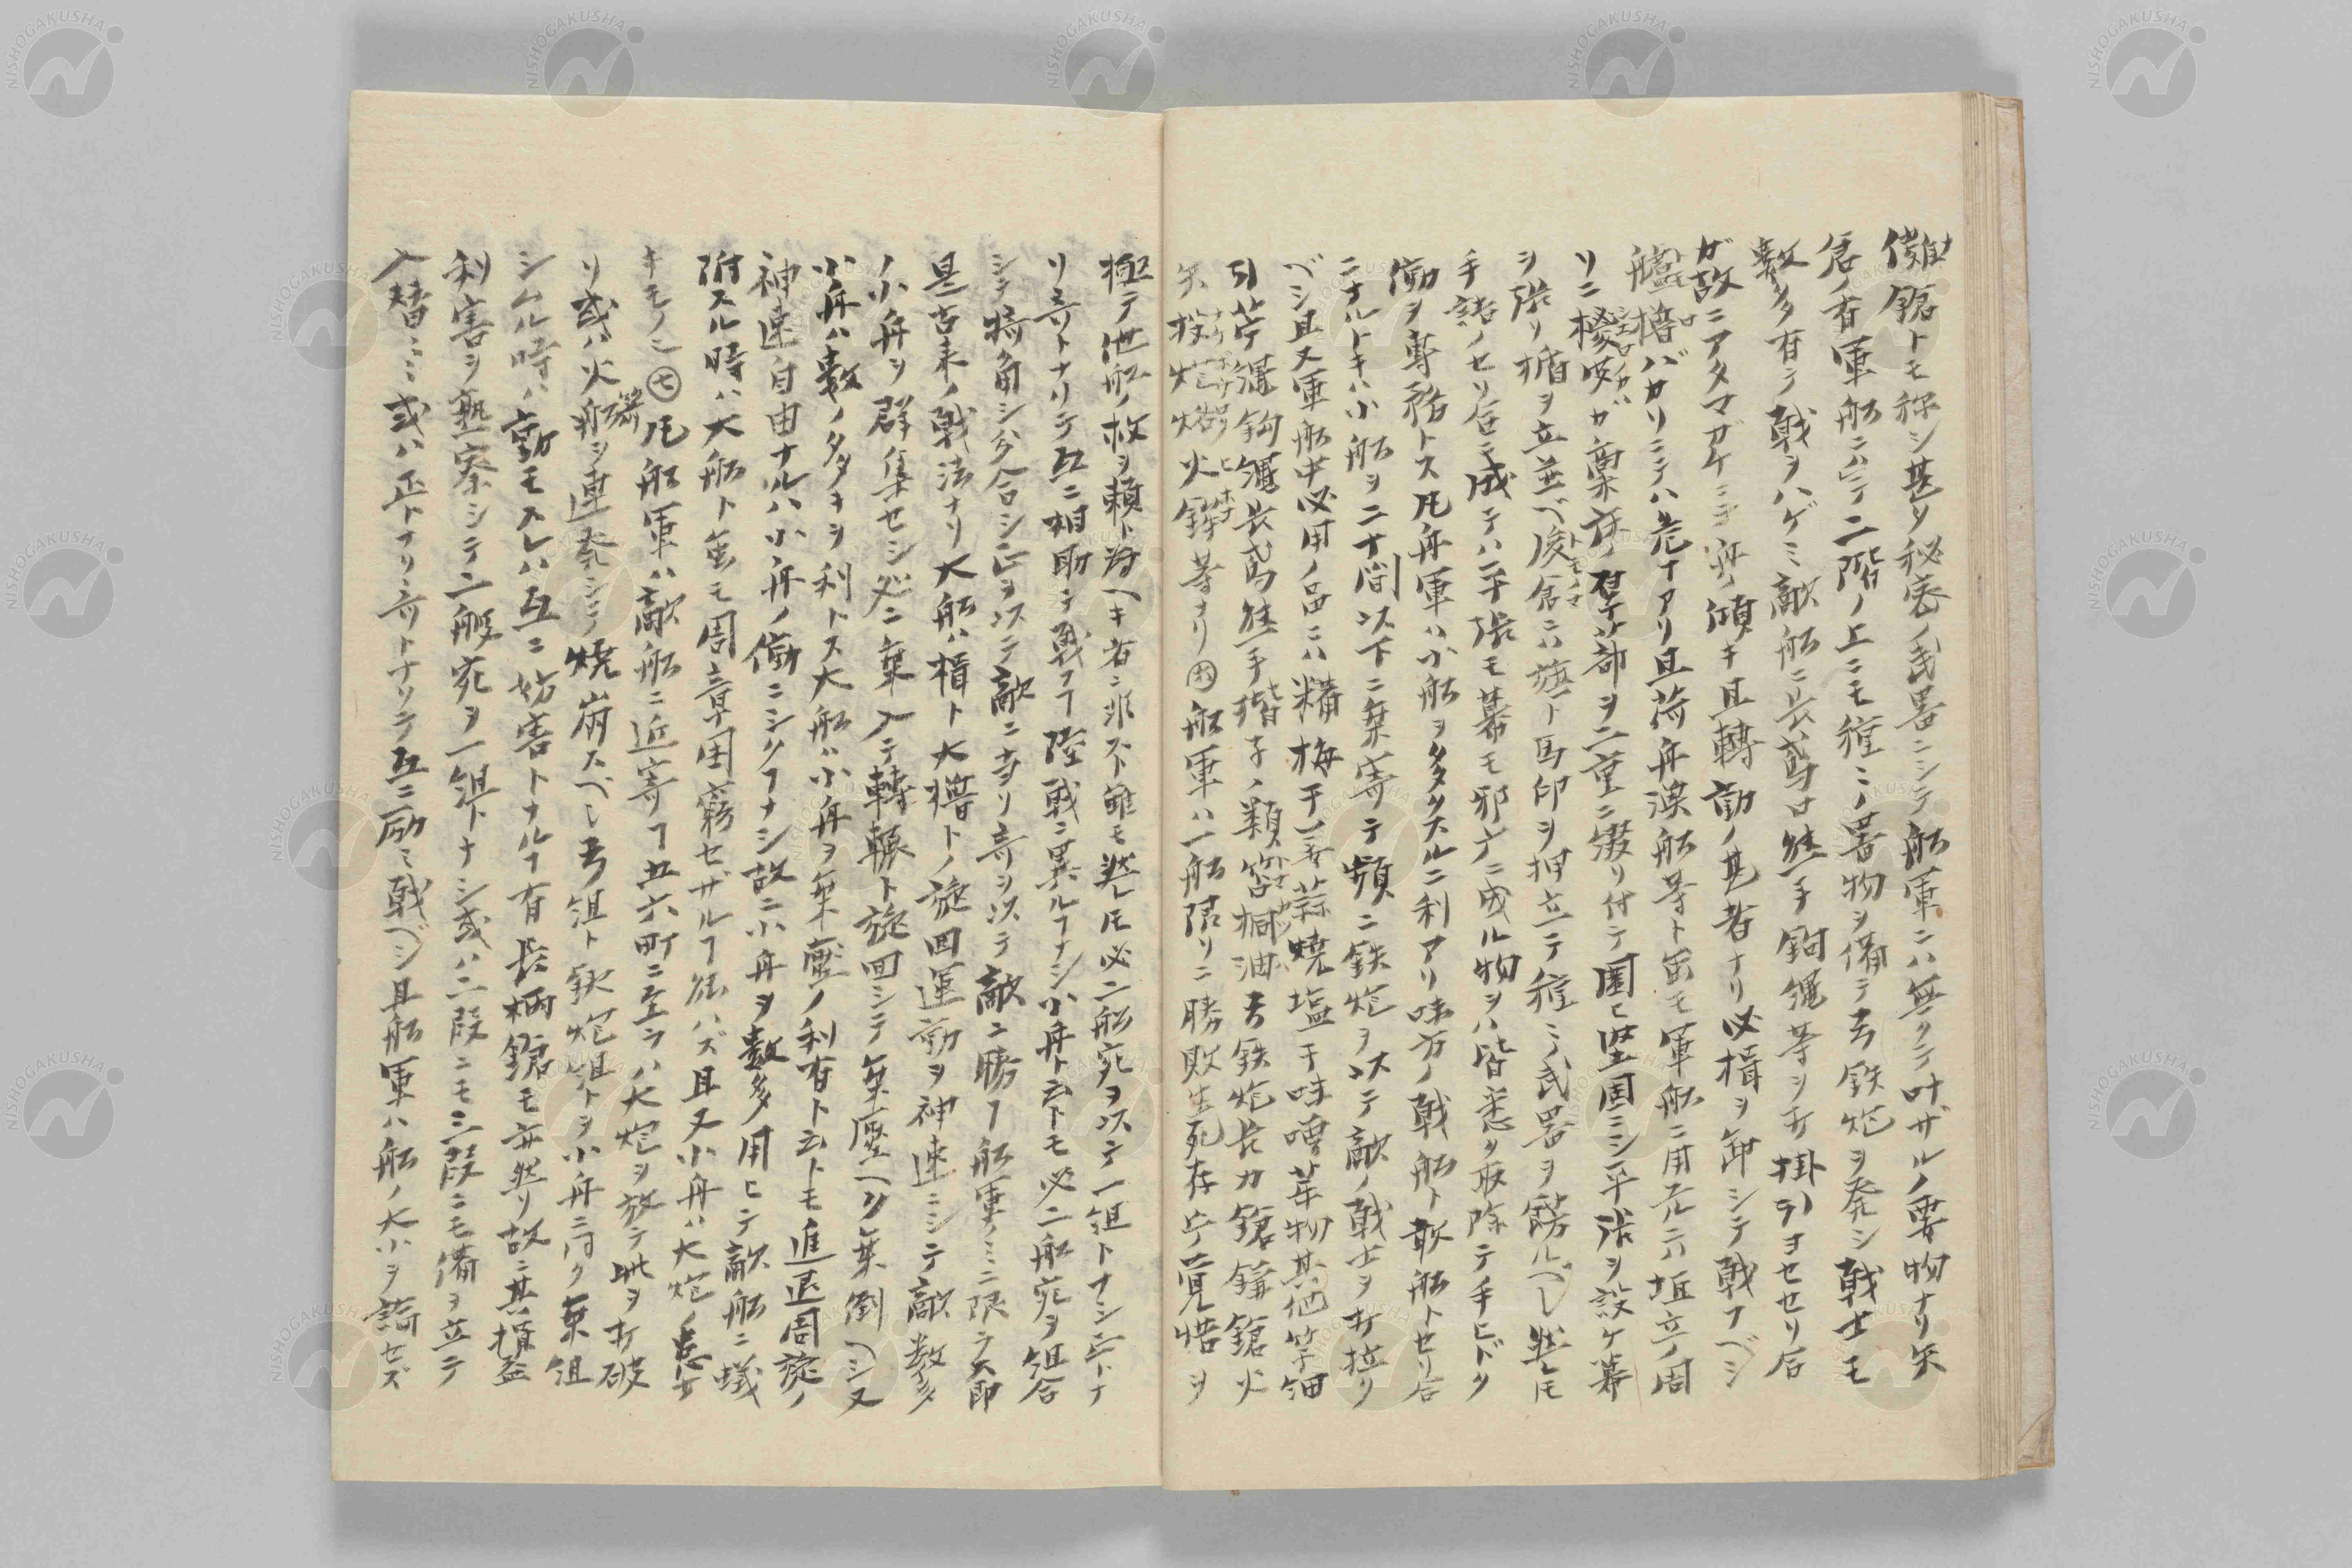 鎗トモ称シ甚ダ秘密ノ武器ニシテ船軍ニハ無クテ叶ザルノ要物ナリ矢
倉ノ有軍船ニハ二階ノ上ニモ種々ノ器物ヲ備テ弓鉄炮ヲ発シ戦士モ
数多有テ戦ヲハゲミ敵船ニ長鳶口熊手鉤縄等ヲ打掛引ヨセセリ合
ガ故ニアタマガケニテ舟ノ傾キ且轉動ノ甚者ナリ必楫ヲ卸シテ戦フベシ
艫櫓バカリニテハ危キアリ且荷舟漁船等ト虽モ軍船ニ用ルニハ垣立ノ周
リニ稷或ガ藁莚ノ類蔀ヲ二重ニ綴リ付テ圍ヒ堅固ニシ平張ヲ設ケ幕
ヲ張リ楯ヲ立並ベ後倉ニハ旗ト馬印ヲ押立テ種々武器ヲ餝ルベシ然レ𪜈
手詰ノセリ合ニ成テハ平張モ幕モ邪广ニ成ル物ヲハ皆悉ク取除テ手ヒドク
働ヲ専務トス凡舟軍ハ小船ヲ多クスルニ利アリ味方ノ戦船ト敵船トセリ合
ニナルトキハ小船ヲ二十間以下ニ乗寄テ頻ニ鉄炮ヲ以テ敵ノ戦士ヲ打拉グ
ベシ且又軍船中必用ノ品ニハ糒梅干蒜焼塩干味噌芋物其他竿細
引苧縄鈎縄長鳶熊手揩子ノ類箬桐油弓鉄炮長刀鎗鎌鎗火
矢投炮烙火鉾等ナリ㊅船軍ハ一船限リニ勝敗生死存亡覚悟ヲ
極テ他船ノ救ヲ頼ト為ヘキ者ニ非スト雖モ然レ𪜈必二船宛ヲ以テ一組トナシ正トナ
リ奇トナリテ互ニ相助テ戦フヿ陸戦ニ異ルヿナシ小舟ト云トモ必二船宛ヲ組合
シテ犄角シ分合シ正ヲ以テ敵ニ當リ奇ヲ以テ敵ニ勝ヿ船軍ノミニ限ラス即
是古来ノ戦法ナリ大船ハ楫ト大櫓トノ旋回運動ヲ神速ニシテ敵数多
ノ小舟ヲ群集セシ処ニ乗入テ轉輾ト旋回シテ乗壓ヘク乗倒ヘシ又
小舟ハ数ノ多キヲ利トス大船ハ小舟ヲ乗壓ノ利有ト云トモ進退周旋ノ
神速自由ナルハ小舟ノ働ニシクヿナシ故ニ小舟ヲ数多用ヒテ敵船ニ蟻
附スル時ハ大船ト虽モ周章困窮セザルヿ能ハズ且又小舟ハ大炮ノ患少
キモノ也㊆凡船軍ハ敵船ニ近寄ヿ五六町ニ至ラハ大炮ヲ放テ此ヲ打破
リ或ハ火箭ヲ連発シテ焼崩スベシ弓組ト鉄炮組トヲ小舟ニ同ク乗組
シムル時ハ動モスレハ互ニ妨害トナルヿ有長柄鎗モ亦然リ故ニ其損益
利害ヲ熟察シテ二艘宛ヲ一組トナシ或ハ二段ニモ三段ニモ備ヲ立テ
入替ミミ或ハ正トナリ奇トナリテ互ニ励ミ戦ベシ且船軍ハ船ノ大小ヲ論セズ